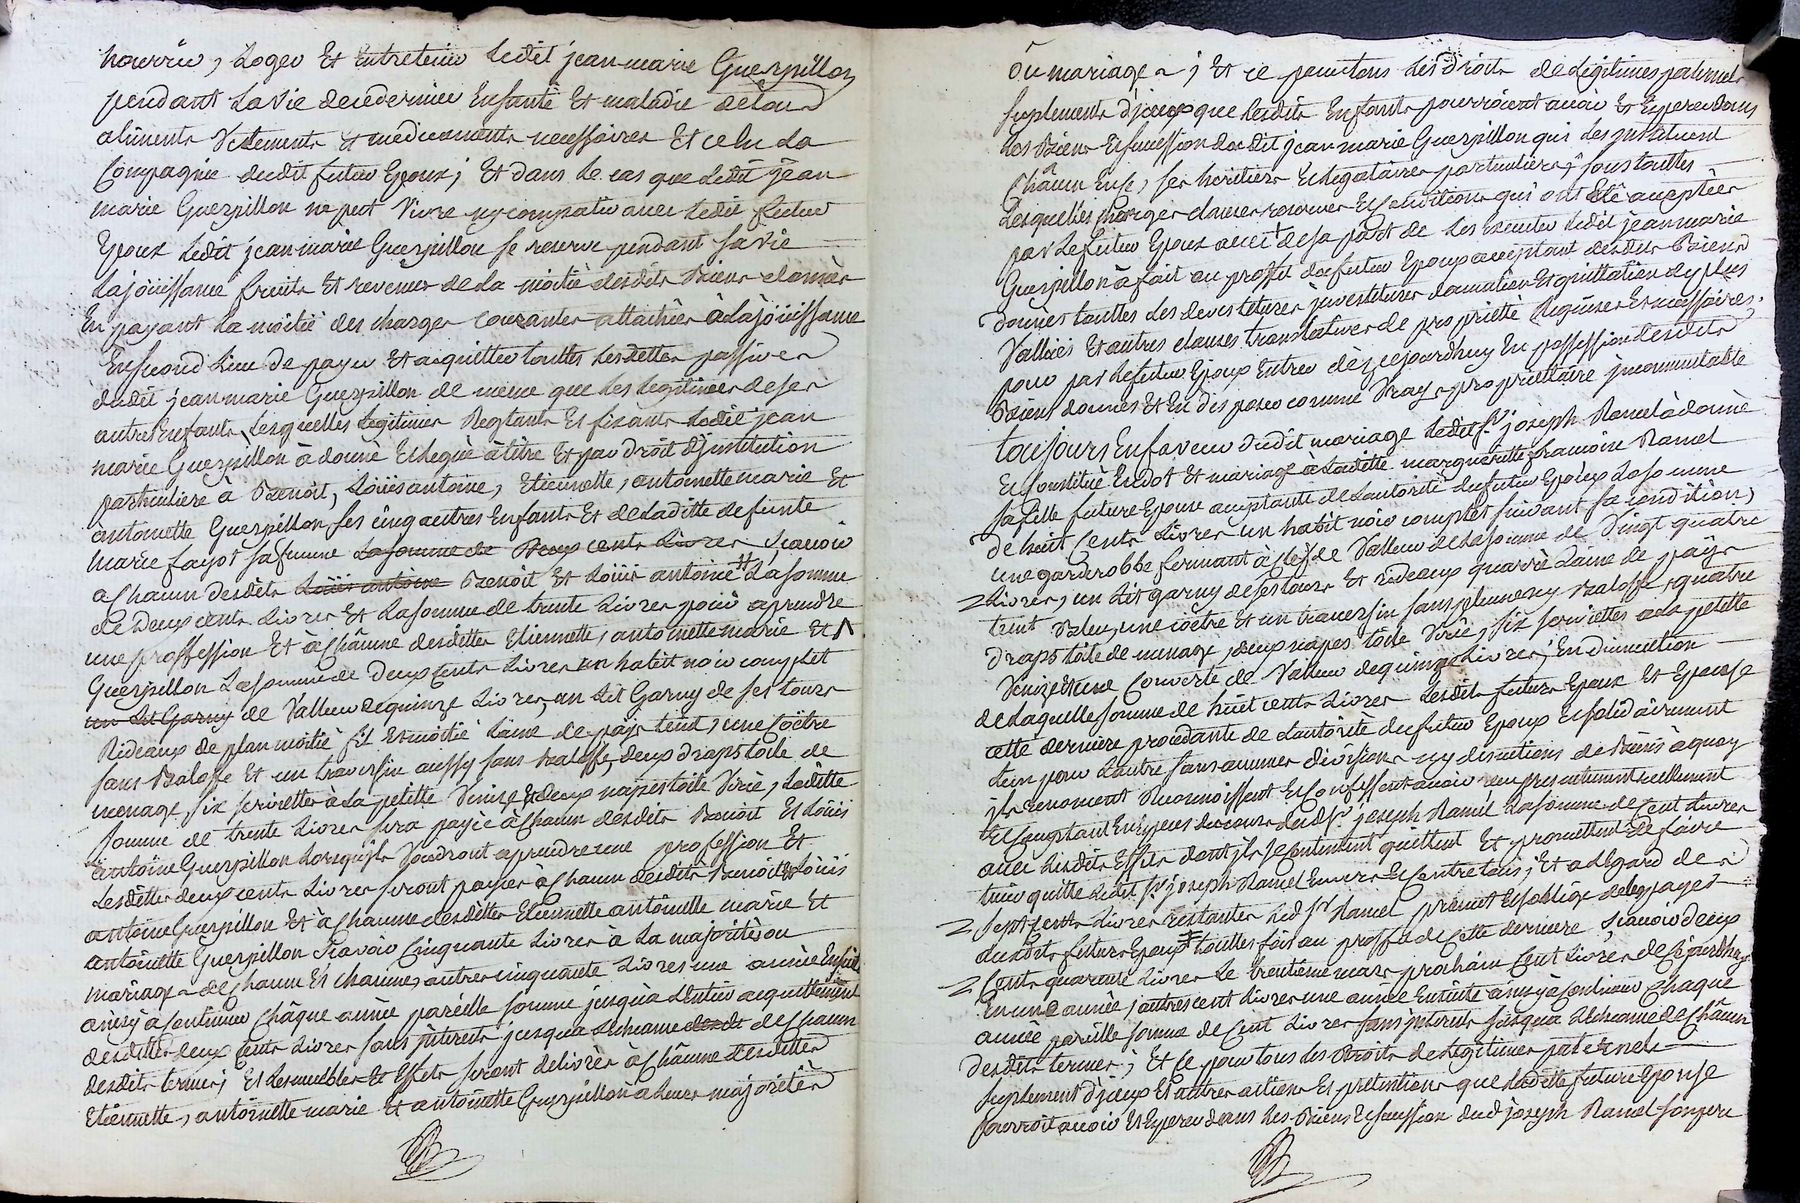 nourrir, Loger Et Entretenir Ledit jean-marie Guerpillon
pendant La vie de ce dernier Enfanté Et maladie de tous
aliments Vetements Et medicaments necessaires Et ce en La
Compagnie dudit futur Epoux; Et dans Le cas que Ledit jean
marie Guerpillon ne peut Vivre ny compatir avec Ledit futur
Epoux Ledit jean marie Guerpillon se reserve pendant sa vie
La joüissance fruits Et revenus de La moitié desdits Biens donnés
En payant La moitié des charges Courantes attachées à La joüissance
En second Lieu de payer Et acquitter touttes Les dettes passives
dudit jean marie Guerpillon de même que Les Legitimes de ses
autres Enfants, Lesquelles Legitimes Reglant Et fixant Ledit jean
marie Guerpillon à donné Et Legué à titre Et par droit d'jnstitution
particuliere à Benoit, Loüis antoine, Etiennette, antoinette marie Et
antoinette Guerpillon ses cinq autres Enfants Et de Laditte defunte
marie fayot sa femme La somme de Deux cents Livres scavoir
a Chacun desdits Loüis antoine Benoit Et Loüis antoine La somme
de Deux cents Livres Et La somme de trente Livres pour aprendre
une proffession Et à Châcune desdittes Etiennette, antoinette marie Et
Guerpillon La somme de Deux Cents Livres un habit noir complet
un Lit Garny de Valleur de quinze Livres, un Lit Garny de ses tours
Rideaux de plan moitié fil Et moitié Laine de païs teint, une Coëtre
sans Baloffe Et un traversin aussy sans baloffe, deux draps toile de
menage six serviettes à La petitte Venize Et deux napes toile Virié, Laditte
somme de trente Livres sera payée à Chacun desdits Benoit Et Loüis
antoine Guerpillon Lorsqu'jls Voudront aprendre une profession Et
Lesdittes deux cents Livres seront payées à Chacun desdits Benoit Et Loüis
antoine Guerpillon Et à Chacune desdittes Etiennette antoinette marie Et
antoinette Guerpillon scavoir Cinquante Livres à La majorité ou
mariage de Chacun Et Chacune, autres cinquante Livres une année Ensuite
ainsy à Continuer Châque année pareille somme jusqu'à L'Entier acquittement
desdittes deux Cents Livres sans jnterets jusqu'a Lecheance desdt de Chacun
desdits termes; Et Les meubles Et Effets seront delivrés à Châcune desdittes
Etiennette, antoinette marie Et antoinette Guerpillon à Leurs majorités
ou mariage; Et ce pour tous Les droits de Légitimes paternels
suplements d'jceux que Lesdits Enfants pourroient avoir Et Esperer dans
Les Biens Et succession dudit jean marie Guerpillon qui Les jnstituent
Châcun En ce, ses heritiers Et Legataires particuliers, sous touttes
Lesquelles charges clauses reserves Et conditions qui ont Eté acceptées
par Le futur Epoux avec de sa part de Les Executer Ledit jean marie
Guerpillon à fait au proffit du futur Epoux acceptant desdits Biens
donnés touttes Les devestitures jnvestitures donnation Et quittation de plus
Vallües Et autres clauses translatives de proprietté Requises Et necessaires,
pour par Le futur Epoux Entrer dès cejourdhuy En possession desdits
Biens donnés Et En disposer comme Vray proprietaire jncommutable
toujours En faveur dudit mariage Ledit Sr joseph Ramel à donné
Et Constitué En dot Et mariage à Laditte margueritte francoise Ramel
sa fille future Epouse acceptante de Lautorité du futur Epoux La somme
de huit Cents Livres un habit noir complet suivant sa condition,
une garderobbe fermant à clef de Valleur de La somme de Vingt quatre
Livres, un Lit garny de ses tours Et rideaux quarrés Laine de païs
teint Bleu, une coëtre Et un traversin sans plumes ny Baloffe, quatre
draps toile de menage, deux napes toile Virié, six serviettes a la petitte
Venize Et une Couverte de Valleur de quinze Livres; En diminution
de Laquelle somme de huit cents Livres Lesdits futurs Epoux Et Epouse
cette derniere procedante de Lautorité du futur Epoux Et solidairement
Lun pour Lautre sans aucune division ny discutions de Biens à quoy
jls renoncent Reconnoissent Et Confessent avoir reçu presentement reellement
Et Comptant En Especes du cours dud Sr joseph Ramel La somme de Cent Livres
avec Lesdits Effets dont jls se Contentent quittent Et promettent de faire
tenir quitte Ledit Sr joseph Ramel Envers Et Contre tous; Et a L'Egard des
sept cents Livres restantes Led Sr Ramel promet Et s'oblige de Les payer
auxdits futurs Epoux touttes fois au proffit de Cette derniere, scavoir deux
Cents quarante Livres Le trentième mars prochain Cent Livres de Cejourdhuy
En une année, autres cent Livres une année Ensuite ainsy à Continuer Chaque
année pareille somme de Cent Livres sans jnterets jusqua Lecheance de Châcun
desdits termes; Et Ce pour tous Les droits de Legitimes paternels
suplement d'jceux Et autres actions Et pretentions que Laditte future Epouse
pourroit avoir Et Esperer dans Les Biens Et succession dud joseph Ramel son pere